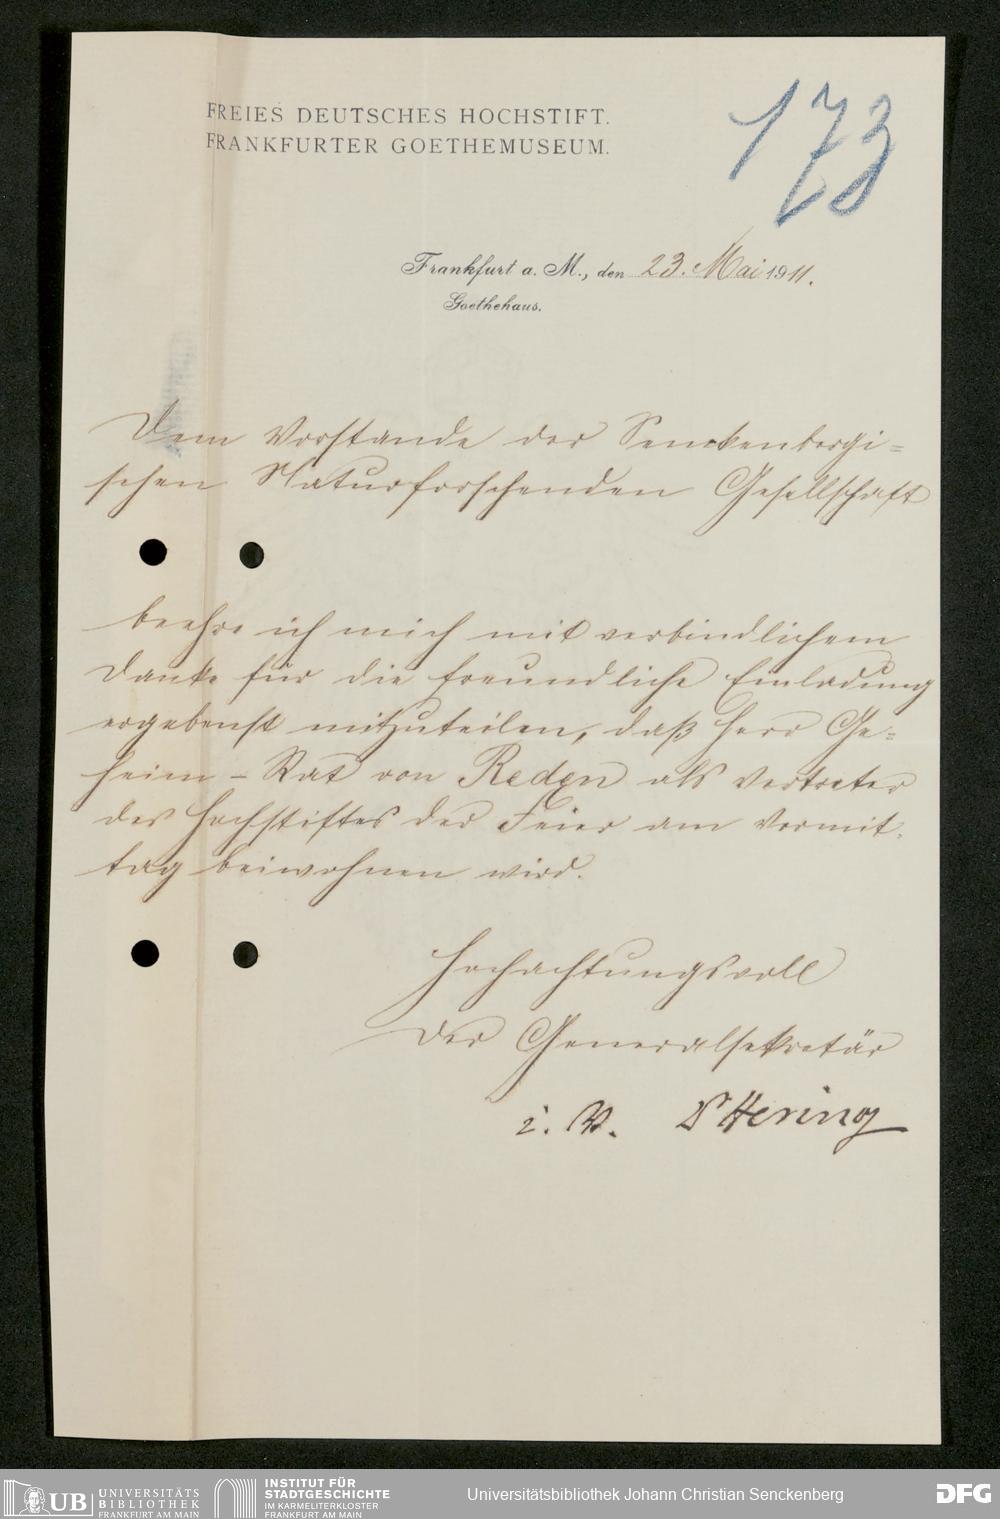 FREIES DEUTSCHES HOCHSTIFT.
FRANKFURTER GOETHEMUSEUM.
173
Frankfurt a. M., den 23. Mai 1911.
Goethehaus.
Dem Vorstande der Senckenbergi=
schen Naturforschenden Gesellschaft
beehre ich mich mit verbindlichem
Danke für die freundliche Einladung
ergebenst mitzuteilen, daß Herr Ge=
heim-Rat von Reden als Vertreter
des Hochstiftes der Feier am Vormit-
tag beiwohnen wird.
Hochachtungsvoll
Der Generalsekretär
i. V. Dr Hering
UB UNIVERSITÄTS
BIBLIOTHEK
FRANKFURT AM MAIN
INSTITUT FÜR
STADTGESCHICHTE
IM KARMELITERKLOSTER
FRANKFURT AM MAIN
Universitätsbibliothek Johann Christian Senckenberg
DFG